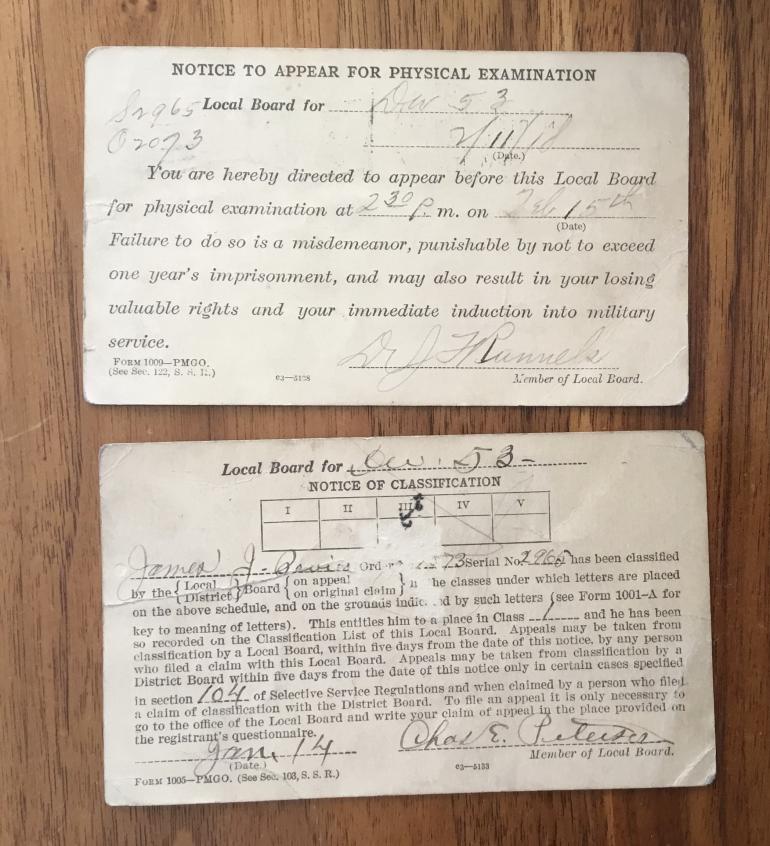 NOTICE TO APPEAR FOR PHYSICAL EXAMINATION
S2965 Local Board for Div 53
O2073
2/11/18
(Date.)
You are hereby directed to appear before this Local Board
for physical examination at 2 30 P. m. on Feb 15th
(Date)
Failure to do so is a misdemeanor, punishable by not to exceed
one year's imprisonment, and may also result in your losing
valuable rights and your immediate induction into military
service.
Form 1009—PMGO.
(See Sec. 122, S. S. R.)
c3—5128
Dr J Runnels
Member of Local Board.
Local Board for Div. 53
NOTICE OF CLASSIFICATION
I II III IV V
James J. Ord 73 Serial No. 2965 has been classified
by the { Local District } Board { on appeal on original claim } the classes under which letters are placed
on the above schedule, and on the grounds indic d by such letters (see Form 1001-A for
key to meaning of letters). This entitles him to a place in Class 1 and he has been
so recorded on the Classification List of this Local Board. Appeals may be taken from
classification by a Local Board, within five days from the date of this notice, by any person
who filed a claim with this Local Board. Appeals may be taken from classification by a
District Board within five days from the date of this notice only in certain cases specified
in section 104 of Selective Service Regulations and when claimed by a person who filed
a claim of classification with the District Board. To file an appeal it is only necessary to
go to the office of the Local Board and write your claim of appeal in the place provided on
the registrant's questionnaire.
Jan. 14
(Date.)
Chas E. Peterson
Member of Local Board.
Form 1005—PMGO. (See Sec. 103, S. S. R.)
c3—5133